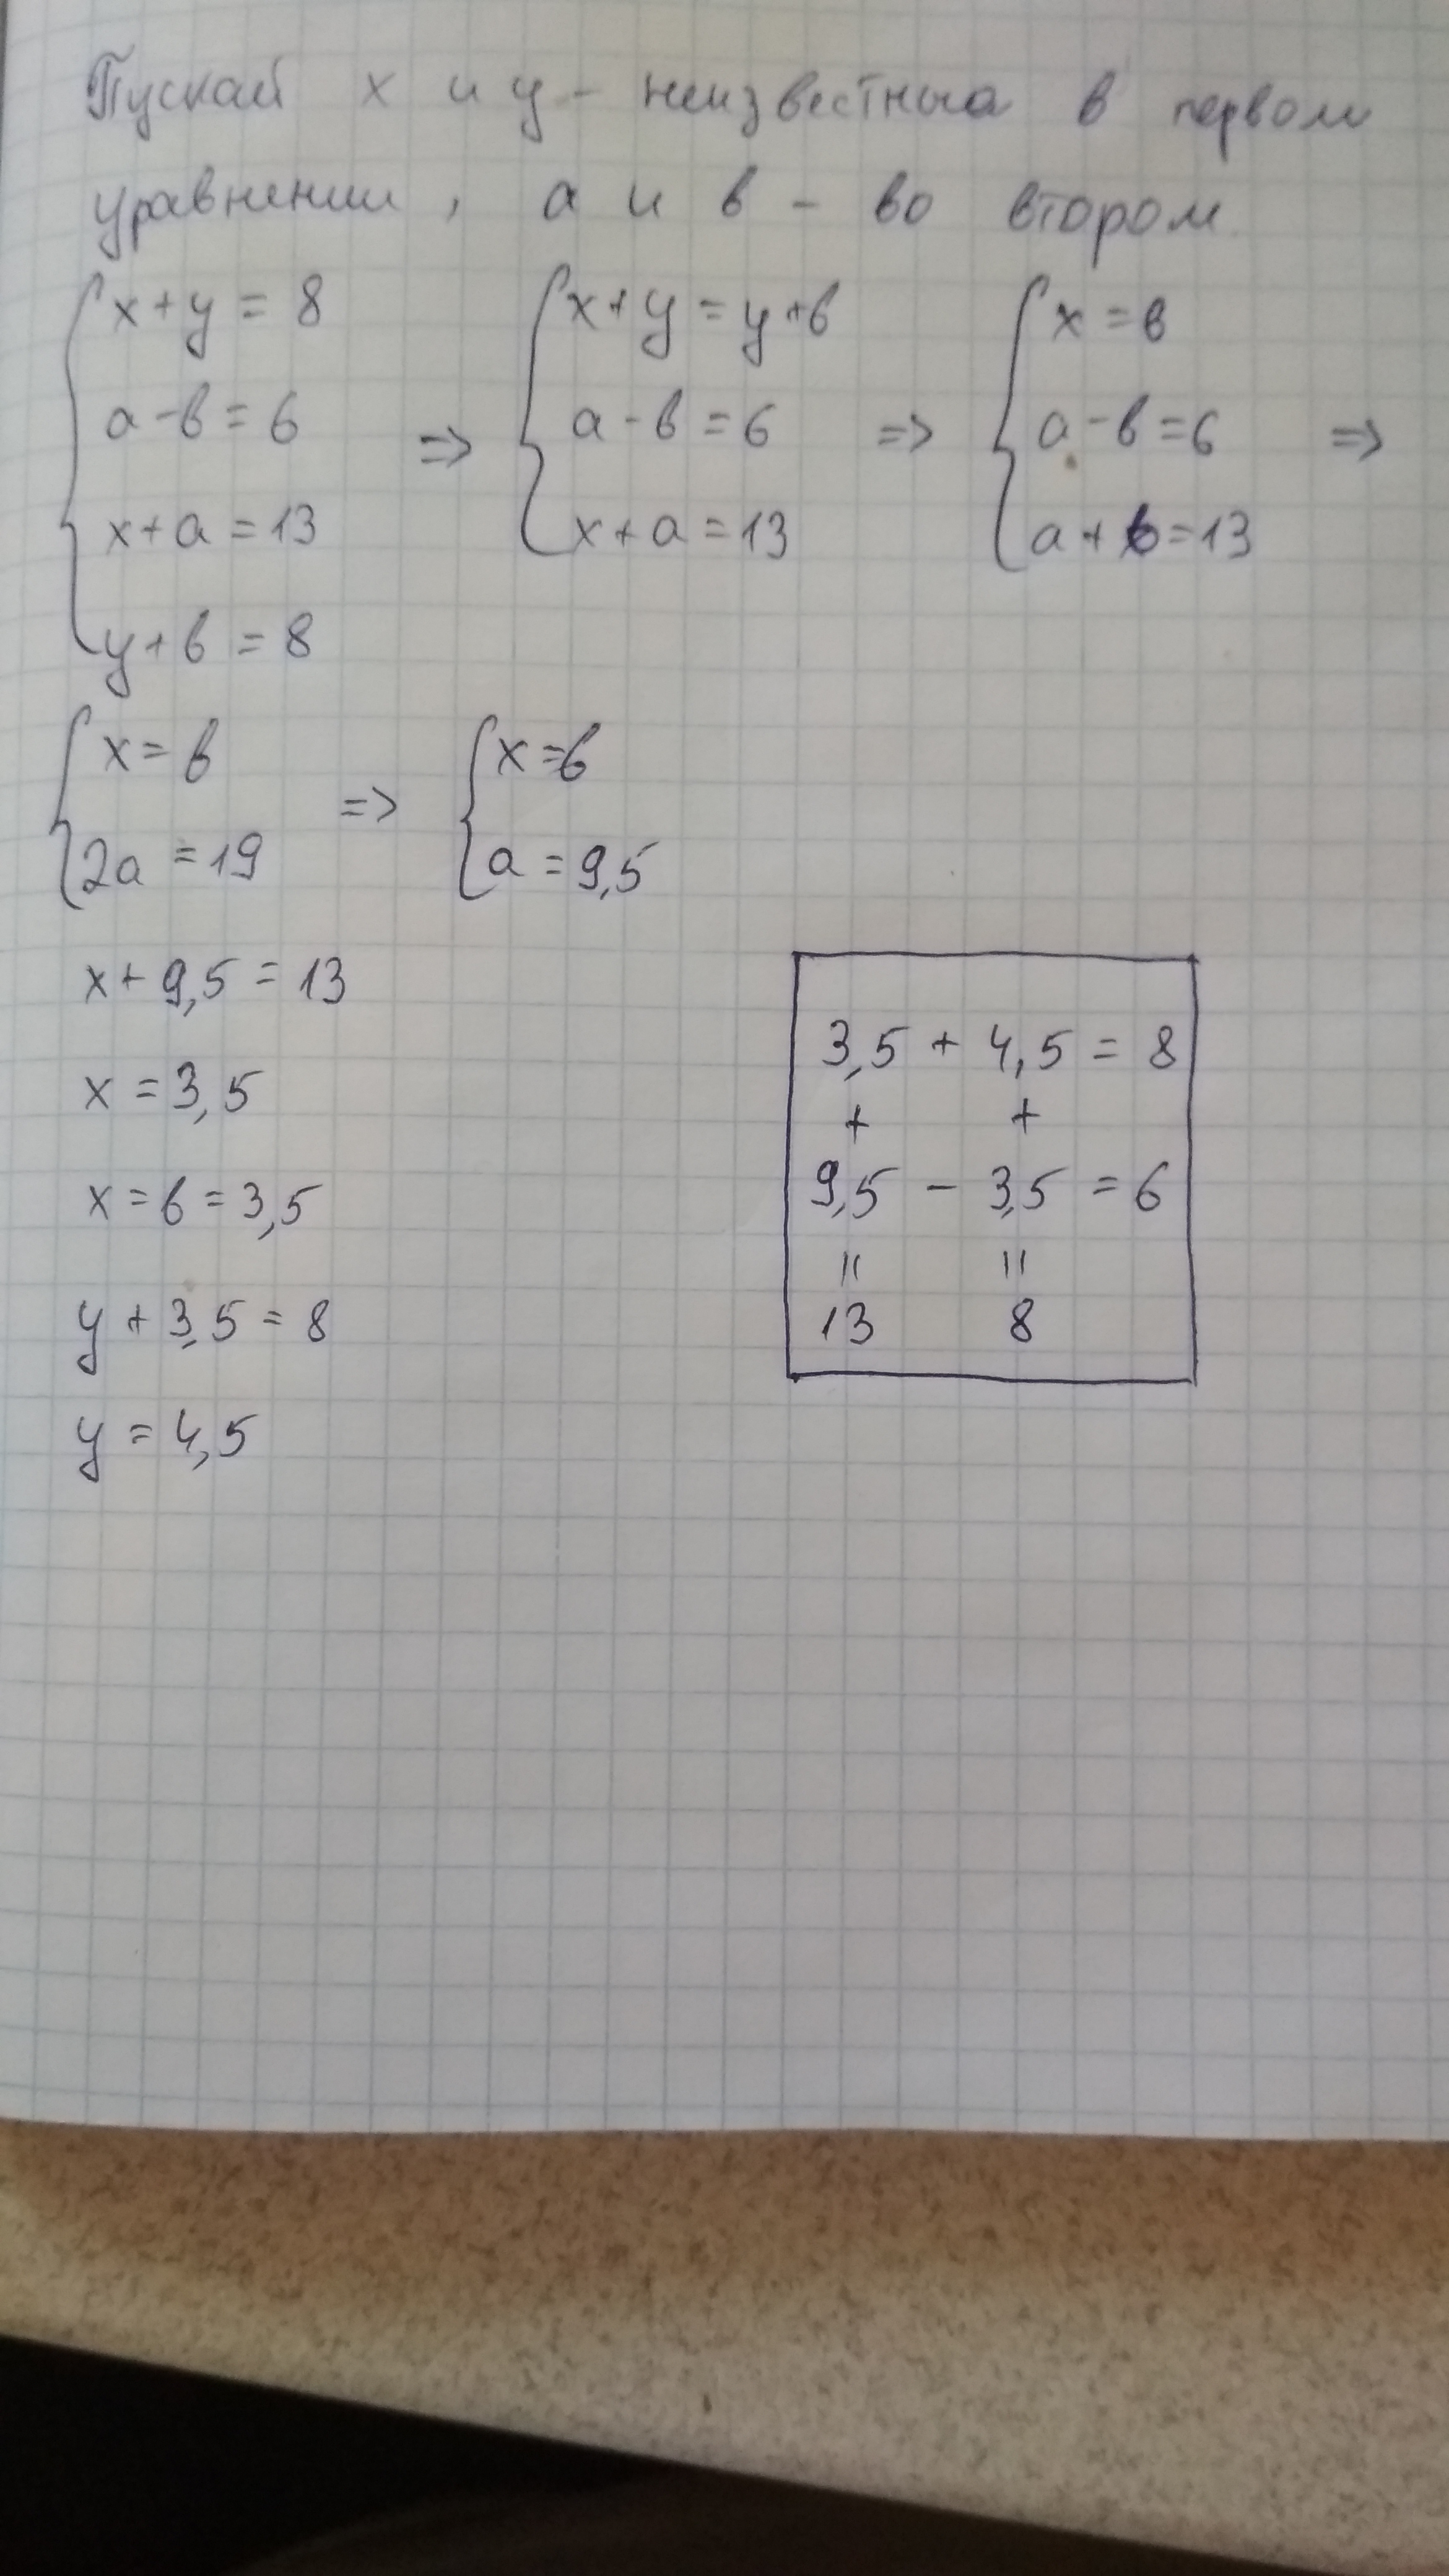 Пускай x и y - неизвестныа в первом
уравнении, a и в - во втором.
x+y = 8
a-в = 6
x+a = 13
y+в = 8
=>
x+y = y+в
a-в = 6
x+a = 13
=>
x = в
a-в = 6
a+в = 13
=>
x = в
2a = 19
=>
x = в
a = 9,5
x + 9,5 = 13
x = 3,5
x = в = 3,5
y + 3,5 = 8
y = 4,5
3,5 + 4,5 = 8
+ +
9,5 - 3,5 = 6
= =
13 8